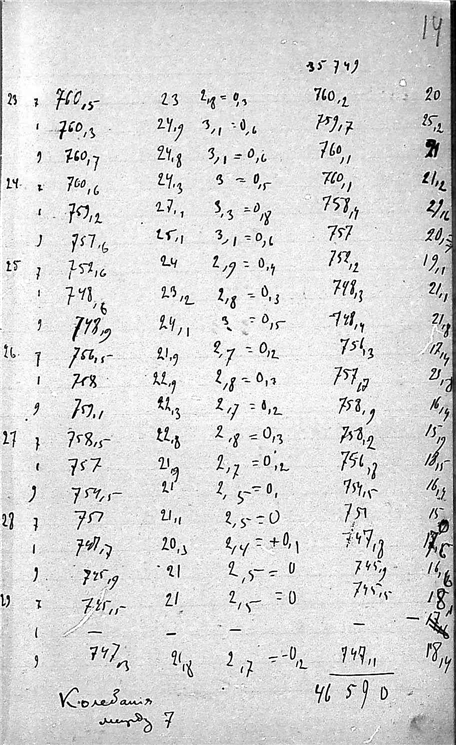 14
35 749
23 7 760,5 23 2,8 = 0,3 760,2 20
1 760,3 24,9 3,1 = 0,6 759,7 25,2
9 760,7 24,8 3,1 = 0,6 760,1 21
24 7 760,6 24,3 3 = 0,5 760,1 21,2
1 759,2 27,1 3,3 = 0,8 758,4
9 757,6 25,1 3,1 = 0,6 757 20,5
25 7 752,6 24 2,9 = 0,4 752,2 19,1
1 748,6 23,2 2,8 = 0,3 748,3 21,1
9 748,9 24,1 3 = 0,5 748,4 21,8
26 7 756,5 21,9 2,7 = 0,2 756,3 17,4
1 758 22,9 2,8 = 0,3 757,7
9 759,1 22,3 2,7 = 0,2 758,9 16,4
27 7 758,5 22,8 2,8 = 0,3 758,2 15,9
1 757 21,9 2,7 = 0,2 756,8 18,5
9 754,5 21 2,5 = 0, 754,5 16,2
28 7 751 21,1 2,5 = 0 751 15
1 747,7 20,3 2,4 = +0,1 747,8
9 745,9 21 2,5 = 0 745,9 16,6
29 7 745,5 21 2,5 = 0 745,5 18
1 – – – –
9 747,3 21,8 2,7 = -0,2 747,1 18,4
46 590
Колебания
между 7